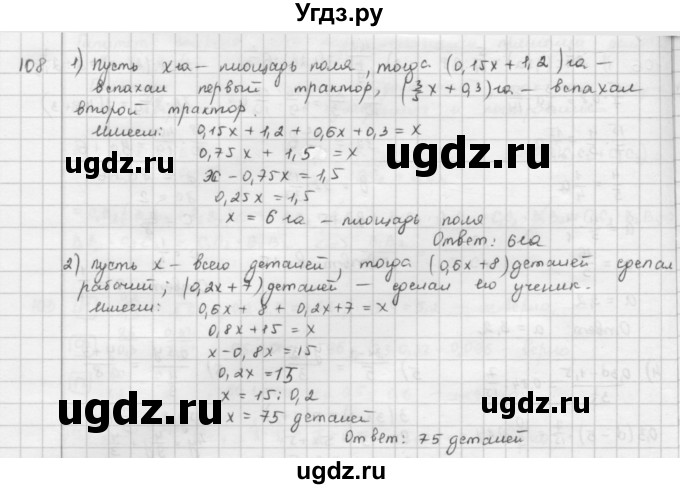 Угдз.ру
108 1) Пусть x га – площадь поля, тогда (0,15x + 1,2) га –
вспахал первый трактор, (3/5 x + 0,3) га – вспахал
второй трактор.
Имеем: 0,15x + 1,2 + 0,6x + 0,3 = x
0,75x + 1,5 = x
x – 0,75x = 1,5
0,25x = 1,5
x = 6 га – площадь поля
Ответ: 6 га
2) Пусть x – всего деталей, тогда (0,6x + 8) деталей сделал
рабочий; (0,2x + 7) деталей – сделал его ученик.
Имеем: 0,6x + 8 + 0,2x + 7 = x
0,8x + 15 = x
x – 0,8x = 15
0,2x = 15
x = 15 : 0,2
x = 75 деталей
Ответ: 75 деталей
ugdz.ru
ugdz.ru
ugdz.ru
ugdz.ru
ugdz.ru
ugdz.ru
ugdz.ru